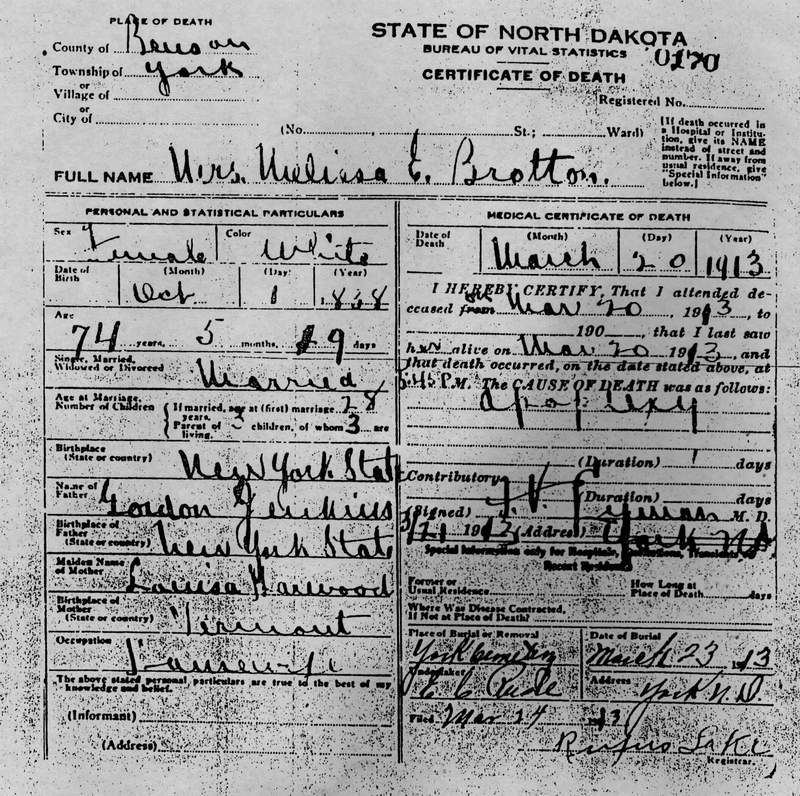 PLACE OF DEATH
STATE OF NORTH DAKOTA
BUREAU OF VITAL STATISTICS
0170
CERTIFICATE OF DEATH
County of Benson
Township of York
or
Village of
or
City of
Registered No.
(No. , St.; Ward)
[If death occurred in
a Hospital or Institu-
tion, give its NAME
instead of street and
number. If away from
usual residence, give
"Special Information"
below.]
FULL NAME Mrs. Melissa E. Brotton.
PERSONAL AND STATISTICAL PARTICULARS
Sex Female Color White
Date of Birth (Month) (Day) (Year)
Oct 1 1838
Age
74 years, 5 months, 19 days
Single, Married,
Widowed or Divorced Married
Age at Marriage,
Number of Children
If married, age at (first) marriage 28
years.
Parent of 3 children, of whom 3 are
living.
Birthplace
(State or country) New York State
Name of
Father Gordon Jenkins
Birthplace of
Father
(State or country) New York State
Maiden Name
of Mother Louisa Harwood
Birthplace of
Mother
(State or country) Vermont
Occupation
The above stated personal particulars are true to the best of my
knowledge and belief.
(Informant)
(Address)
MEDICAL CERTIFICATE OF DEATH
Date of
Death
(Month) (Day) (Year)
March 20 1913
I HEREBY CERTIFY, That I attended de-
ceased from Mar 20, 1913, to
190 , that I last saw
her alive on Mar 20 1913, and
that death occurred, on the date stated above, at
5:45 P.M. The CAUSE OF DEATH was as follows:
apoplexy
(Duration) days
Contributory
(Duration) days
(Signed) M. D.
3/21 1913 (Address) York N.D.
Special Information only for Hospitals, Institutions, Transients or
Recent Residents
Former or
Usual Residence
How Long at
Place of Death days
Where Was Disease Contracted,
If Not at Place of Death?
Place of Burial or Removal
York Cemetery
Date of Burial
March 23 1913
Undertaker
Address
York N.D.
Filed Mar 24 1913
Rufus Lake
Registrar.